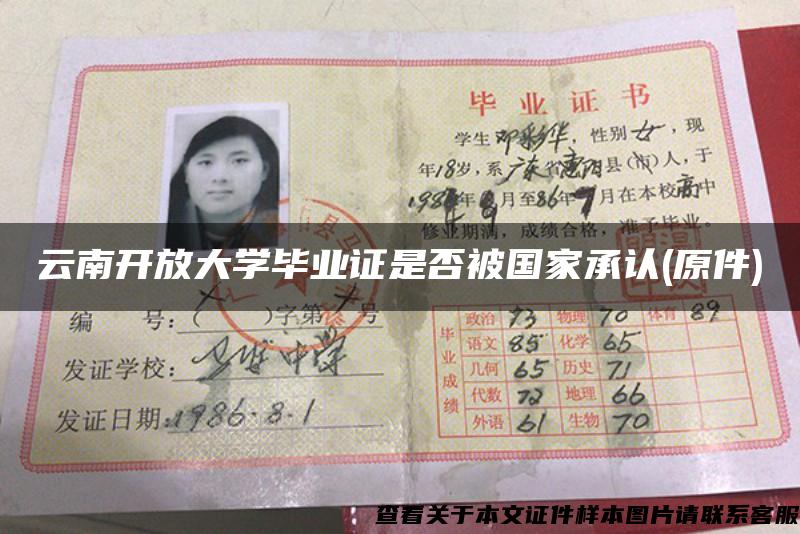 毕业证书
学生邓彩华，性别女，现
年18岁，系广东省惠阳县(市)人，于
月至86年7月在本校高中
修业期满，成绩合格，准予毕业。
云南开放大学毕业证是否被国家承认(原件)
编 号：( )字第 号
发证学校：马安中学
发证日期：1986.8.1
毕业成绩
政治 73 物理 70 体育 89
语文 85 化学 65
几何 65 历史 71
代数 72 地理 66
外语 61 生物 70
查看关于本文证件样本图片请联系客服